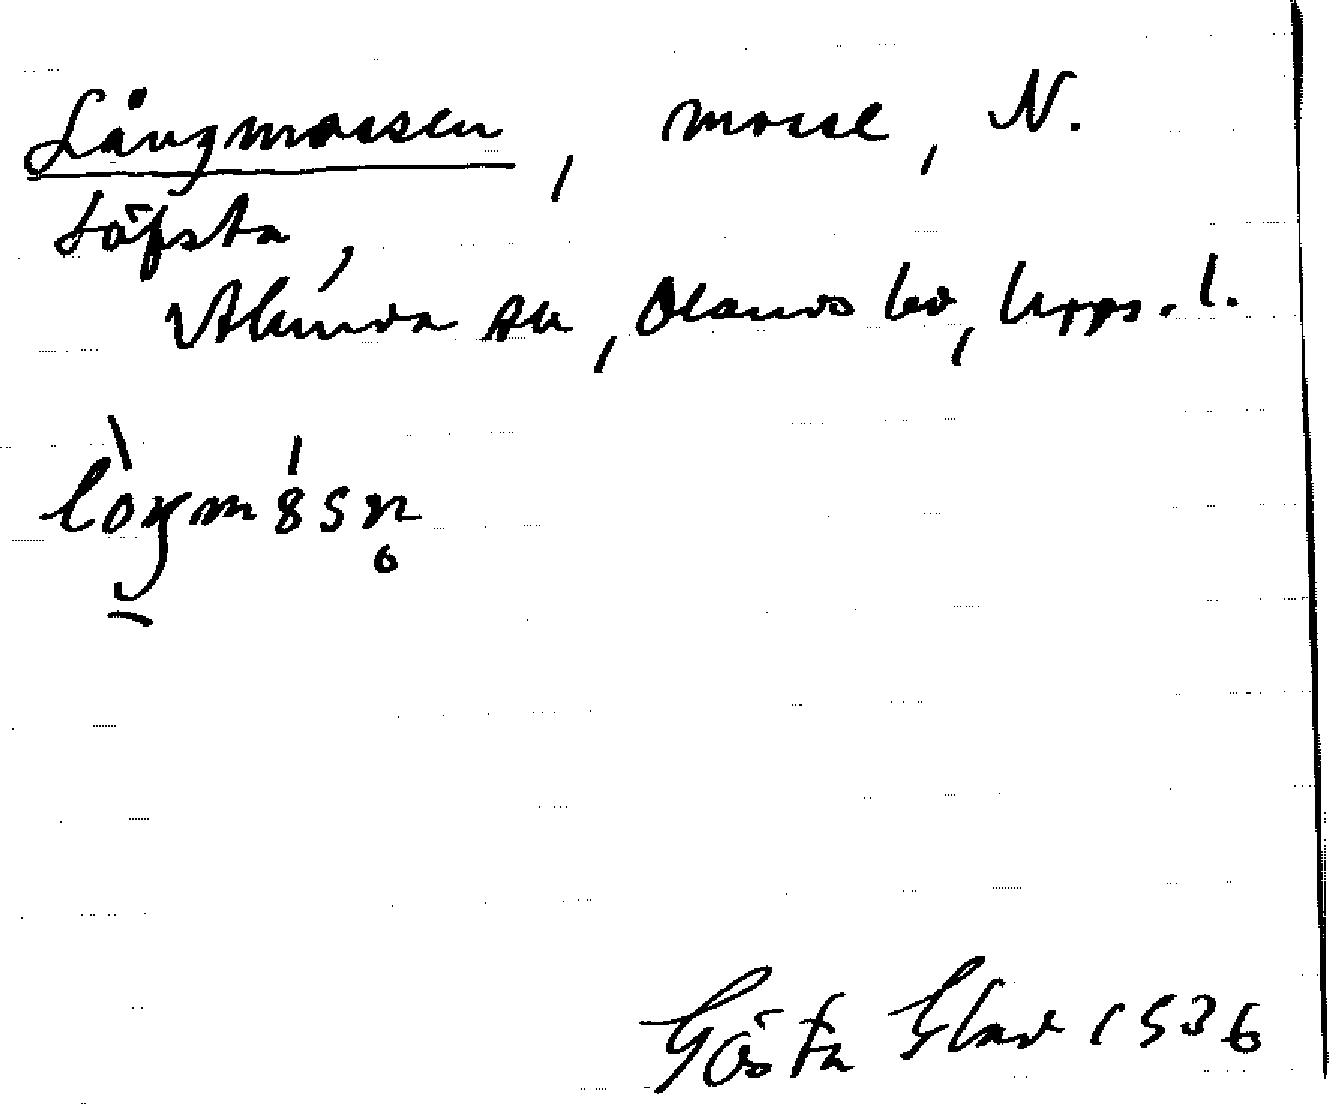 Långmossen, mosse, N.
Löfsta,
Alunda sn, Olands hd, Upps. l.
Gösta Glad 1936